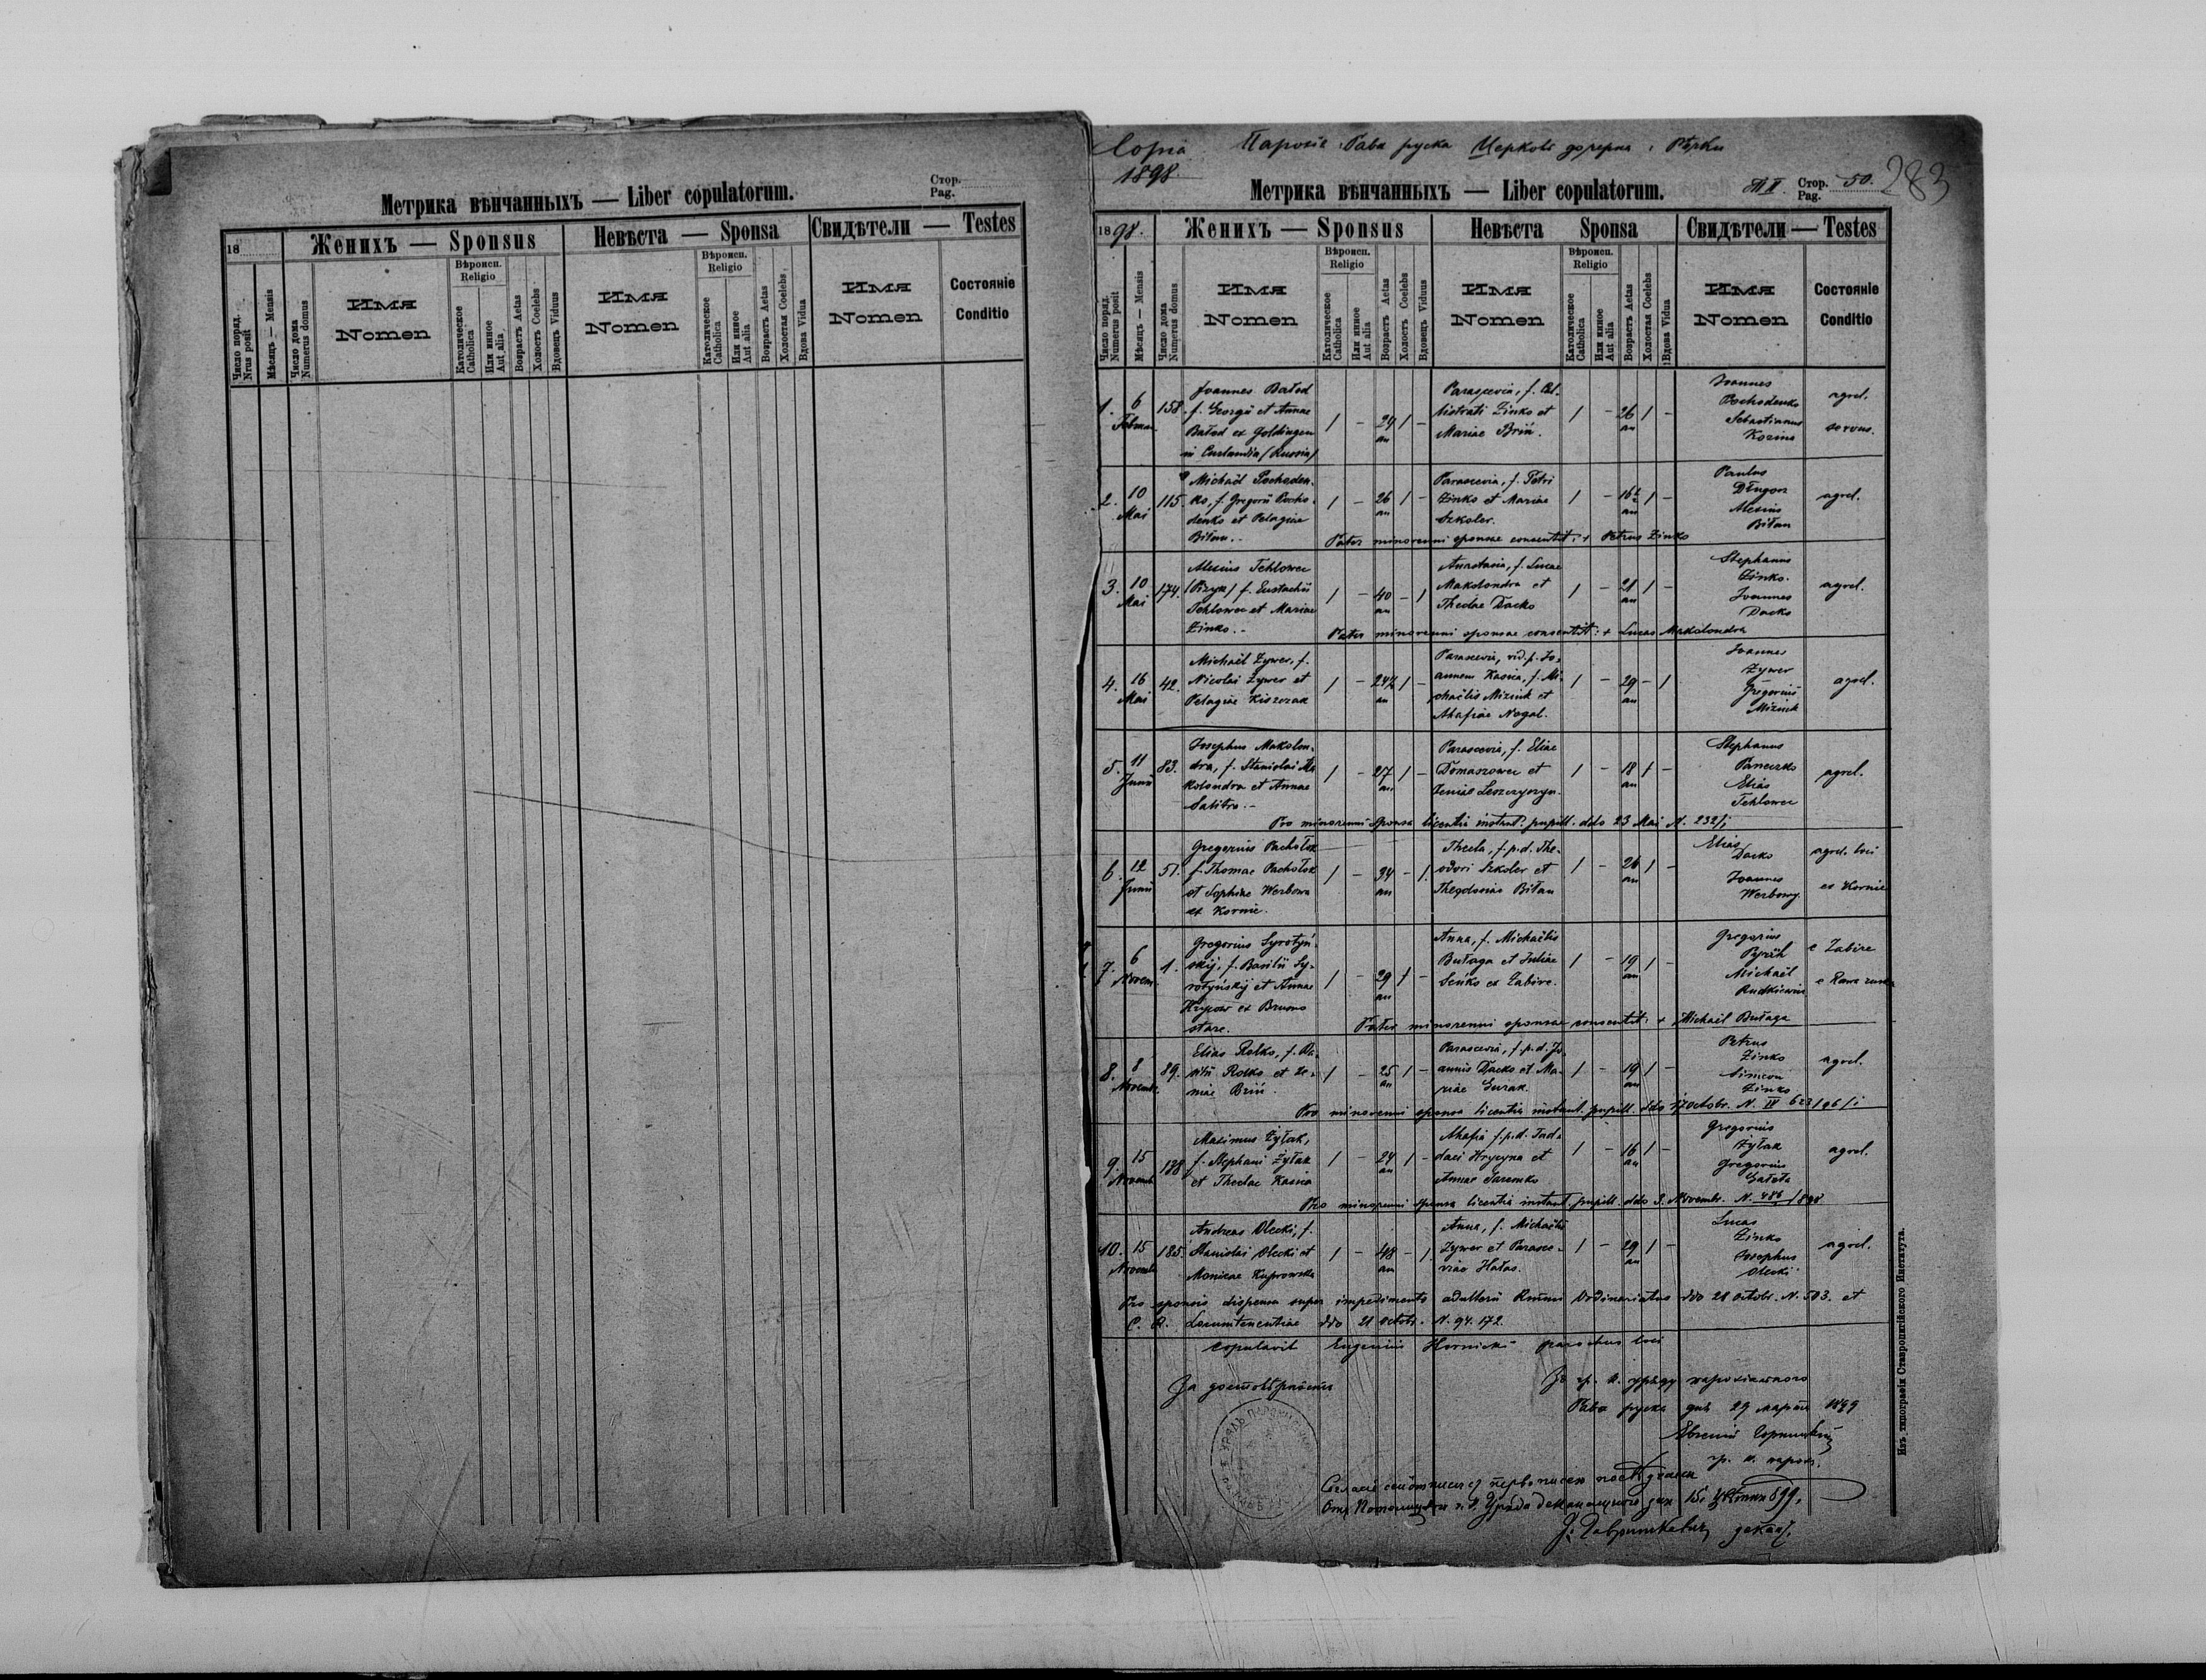 Стор.
Pag.
Метрика вѣнчанныхъ — Liber copulatorum.
18
Женихъ — Sponsus
Невѣста — Sponsa
Свидѣтели — Testes
Число поряд.
Nrus posit
Мѣсяцъ — Mensis
Число дома
Numerus domus
Имя
Nomen
Вѣроисп.
Religio
Католическое
Catholica
Или инное
Aut alia
Возрастъ Aetas
Холостъ Coelebs
Вдовецъ Viduus
Имя
Nomen
Вѣроисп.
Religio
Католическое
Catholica
Или инное
Aut alia
Возрастъ Aetas
Холостая Coelebs
Вдова Vidua
Имя
Nomen
Состояніе
Conditio
Copia
1898
Парохія Рава руска Церковь дочерна
283
Метрика вѣнчанныхъ — Liber copulatorum.
Стор.
Pag.
50.
1898.
Женихъ — Sponsus
Невѣста Sponsa
Свидѣтели — Testes
Число поряд.
Numerus posit
Мѣсяцъ — Mensis
Число дома
Numerus domus
Имя
Nomen
Вѣроисп.
Religio
Католическое
Catholica
Или инное
Aut alia
Возрастъ Aetas
Холостъ Coelebs
Вдовецъ Viduus
Имя
Nomen
Вѣроисп.
Religio
Католическое
Catholica
Или инное
Aut alia
Возрастъ Aetas
Холостая Coelebs
Вдова Vidua
Имя
Nomen
Состояніе
Conditio
1. 6 158. Joannes Bałod 1 - 24 an 1 - Parascevia, f. 1 - 26 an 1 - Joannes agrel.
f. Georgii et Annae
Bałod ex Goldingen
in Curlandia (Russia)
listrati Zinko et
Mariae Briń.
Pochodenko
Sebastianus
Kozma
servus.
2. 10 Mai 115. Michaël Pochoden-
ko, f. Gregorii Pocho-
denko et Pelagiae
Biłan.
1 - 26 an 1 -
Parascevia, f. Petri
Zinko et Mariae
Szkoler.
1 - 16 1 -
Paulus
Długosz
Alexius
Biłan
agrel.
Pater minorenni sponsae consentit: + Petrus Zinko
3. 10 Mai 174. Alexius Tchlowec
f. Eustachii
Tchlowec et Mariae
Zinko.
1 - 40 an - 1
Anastasia, f. Lucae
Makolondra et
Theclae Dacko
1 - 21 an 1 -
Stephanus
Zinko.
Joannes
Dacko
agrel.
Pater minorenni sponsae consentit: + Lucas Makolondra
4. 16 Mai 42. Michaël Zywer, f.
Nicolai Zywer et
Pelagiae Kiszczak
1 - 24½ an 1 -
Parascevia, vid. p. Jo-
annem Kasica, f. Mi-
chaëlis Mizink et
Ahafiae Nogal.
1 - 29 an - 1
Joannes
Zywer
Gregorius
Mizink
agrel.
5. 11 Junii 83. Josephus Makolon-
dra, f. Stanislai Ma-
kolondra et Annae
1 - 27 an 1 -
Parascevia, f. Eliae
Domaszowec et
Xeniae Leszczyszyn.
1 - 18 an 1 -
Stephanus
Paneczko
Elias
Tchlowec
agrel.
Pro minorenni sponsa licentia instant. pupill. ddo 23 Mai N. 232/
6. 12 Junii 51. Gregorius Pachołok
f. Thomae Pachołok
et Sophiae Werbowa
ex Kornie.
1 - 34 an - 1.
Thecla, f. p. d. The-
odori Szkoler et
Theodosiae Biłan
1 - 26 an 1 -
Elias
Dacko
Joannes
Werbowy
agrel. loci
ex Kornie
7. 6 Novem. 1. Gregorius Syrotyń-
skij, f. Basilii Sy-
rotyńskij et Annae
Hrycow ex Brusno
stare.
1 - 29 an 1 -
Anna, f. Michaëlis
Bułaga et Juliae
Seńko ex Zabire.
1 - 19 an 1 -
Gregorius
Michaël
Rudkiewicz
e Zabire
e Rawa ruska
Pater minorenni sponsae consentit: + Michaël Bułaga
8. 8 Novemb. 89. Elias Rolko, f. Ba-
silii Rolko et Xe-
niae Briń.
1 - 25 an 1 -
Parascevia, f. p. d. Jo-
annis Dacko et Ma-
riae Gurak.
1 - 19 an 1 -
Petrus
Zinko
Simeon
Zinko
agrel.
Pro minorenni sponsa licentia instant. pupill. ddo 17 Octobr. N. IV 623/96/1
9. 15 Novemb. 138. Maximus Żyłak,
f. Stephani Żyłak
et Theclae Kasica
1 - 24 an 1 -
Ahafia f. p. d. Thad-
daei Hrycyna et
Annae Jaremko
1 - 16 an 1 -
Gregorius
Żyłak
Gregorius
Gałata
agrel.
Pro minorenni sponsa licentia instant. pupill. ddo 3. Novembr. N. 486/898
10. 15 Novemb. 185. Andreas Olecki, f.
Stanislai Olecki et
Monicae Kuprowska
1 - 48 an - 1.
Anna, f. Michaëlis
Zywer et Parasce-
viae Hałas.
1 - 29 an 1 -
Lucas
Zinko
Josephus
Olecki
agrel.
Pro sponsis dispensa super impedimento adulterii Rmmi Ordinariatus ddo 28 Octobr. N. 503. et
C. R. Locumtenentiae ddo 21 Octobr. N. 94.172.
Copulavit Eugenius Hornicki parochus loci
За достовѣрность
Рава руска дня 29 марта 1899
Евгеній Горницкій
гр. к. парох.
Изъ типографіи Ставропигійского Института.